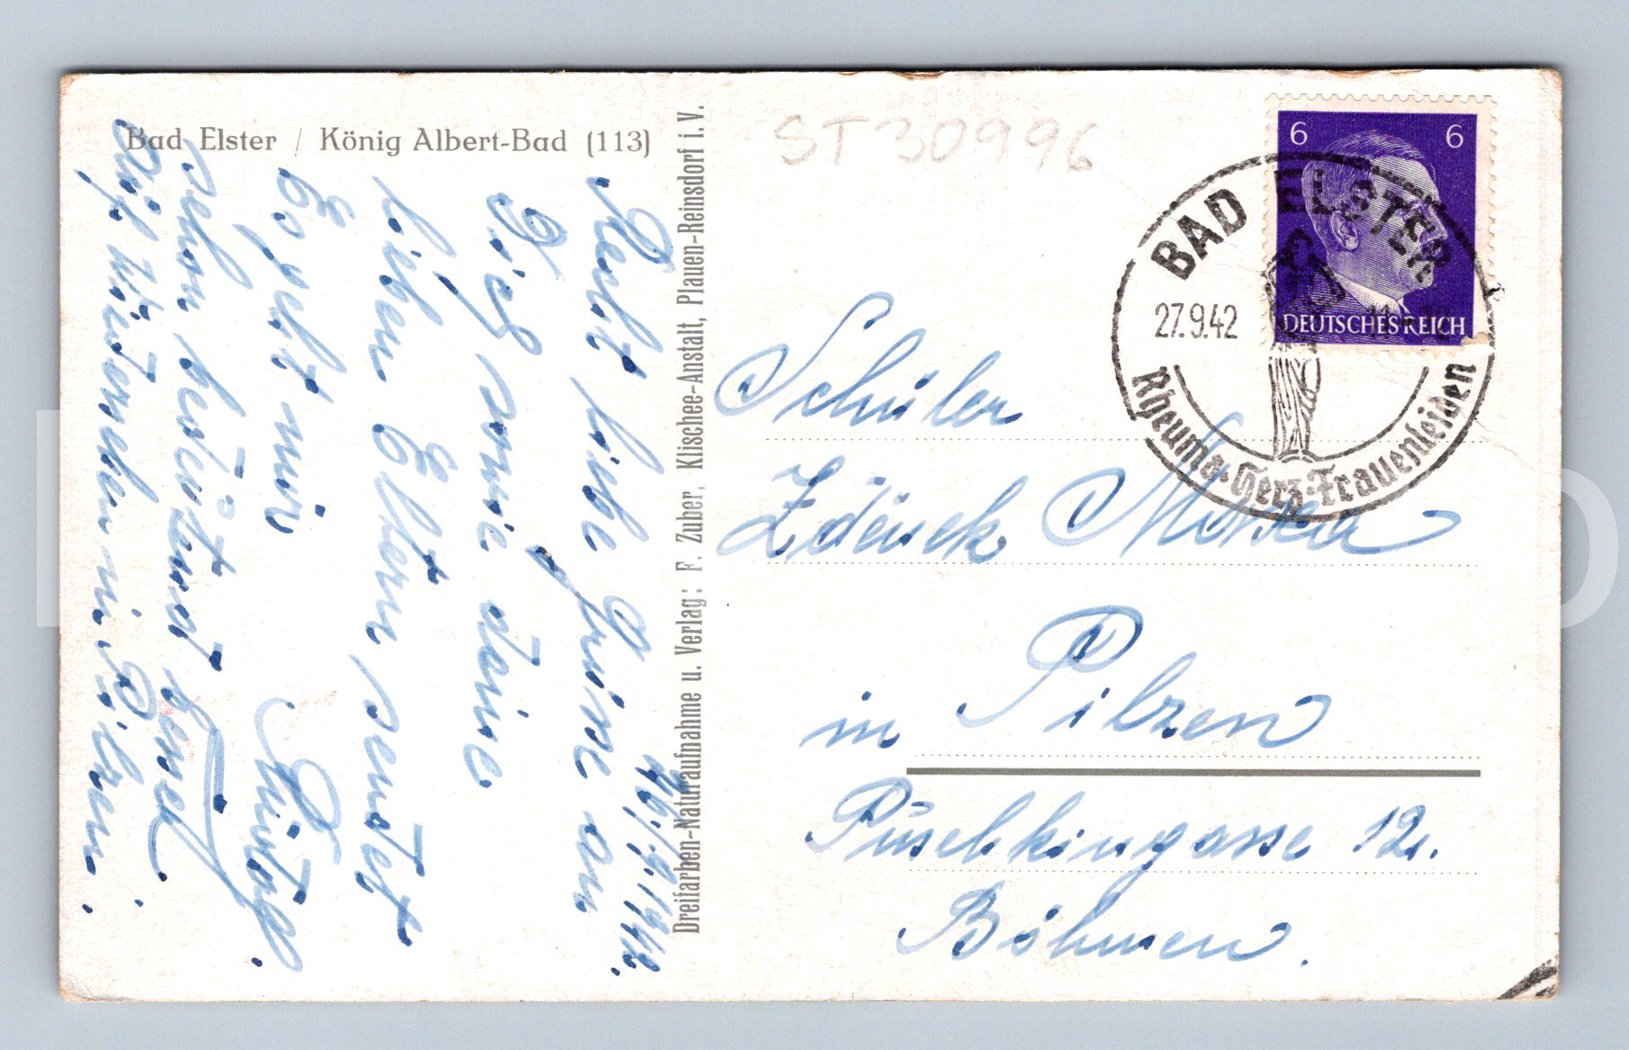 Bad Elster / König Albert-Bad (113)
26./9. 1942.
Recht liebe Grüsse an
Dich sowie deine
lieben Eltern sendet
Es geht mir
schon bedeutend
Auf Wiedersehen in Pilzen.
Dreifarben-Naturaufnahme u. Verlag: F. Zuber, Klischee-Anstalt, Plauen-Reinsdorf i. V.
ST30996
6 6
DEUTSCHES REICH
BAD ELSTER
27.9.42
Rheuma·Herz·Frauenleiden
Schüler
Zdenek
in Pilzen
Puschkingasse 12.
Böhmen.